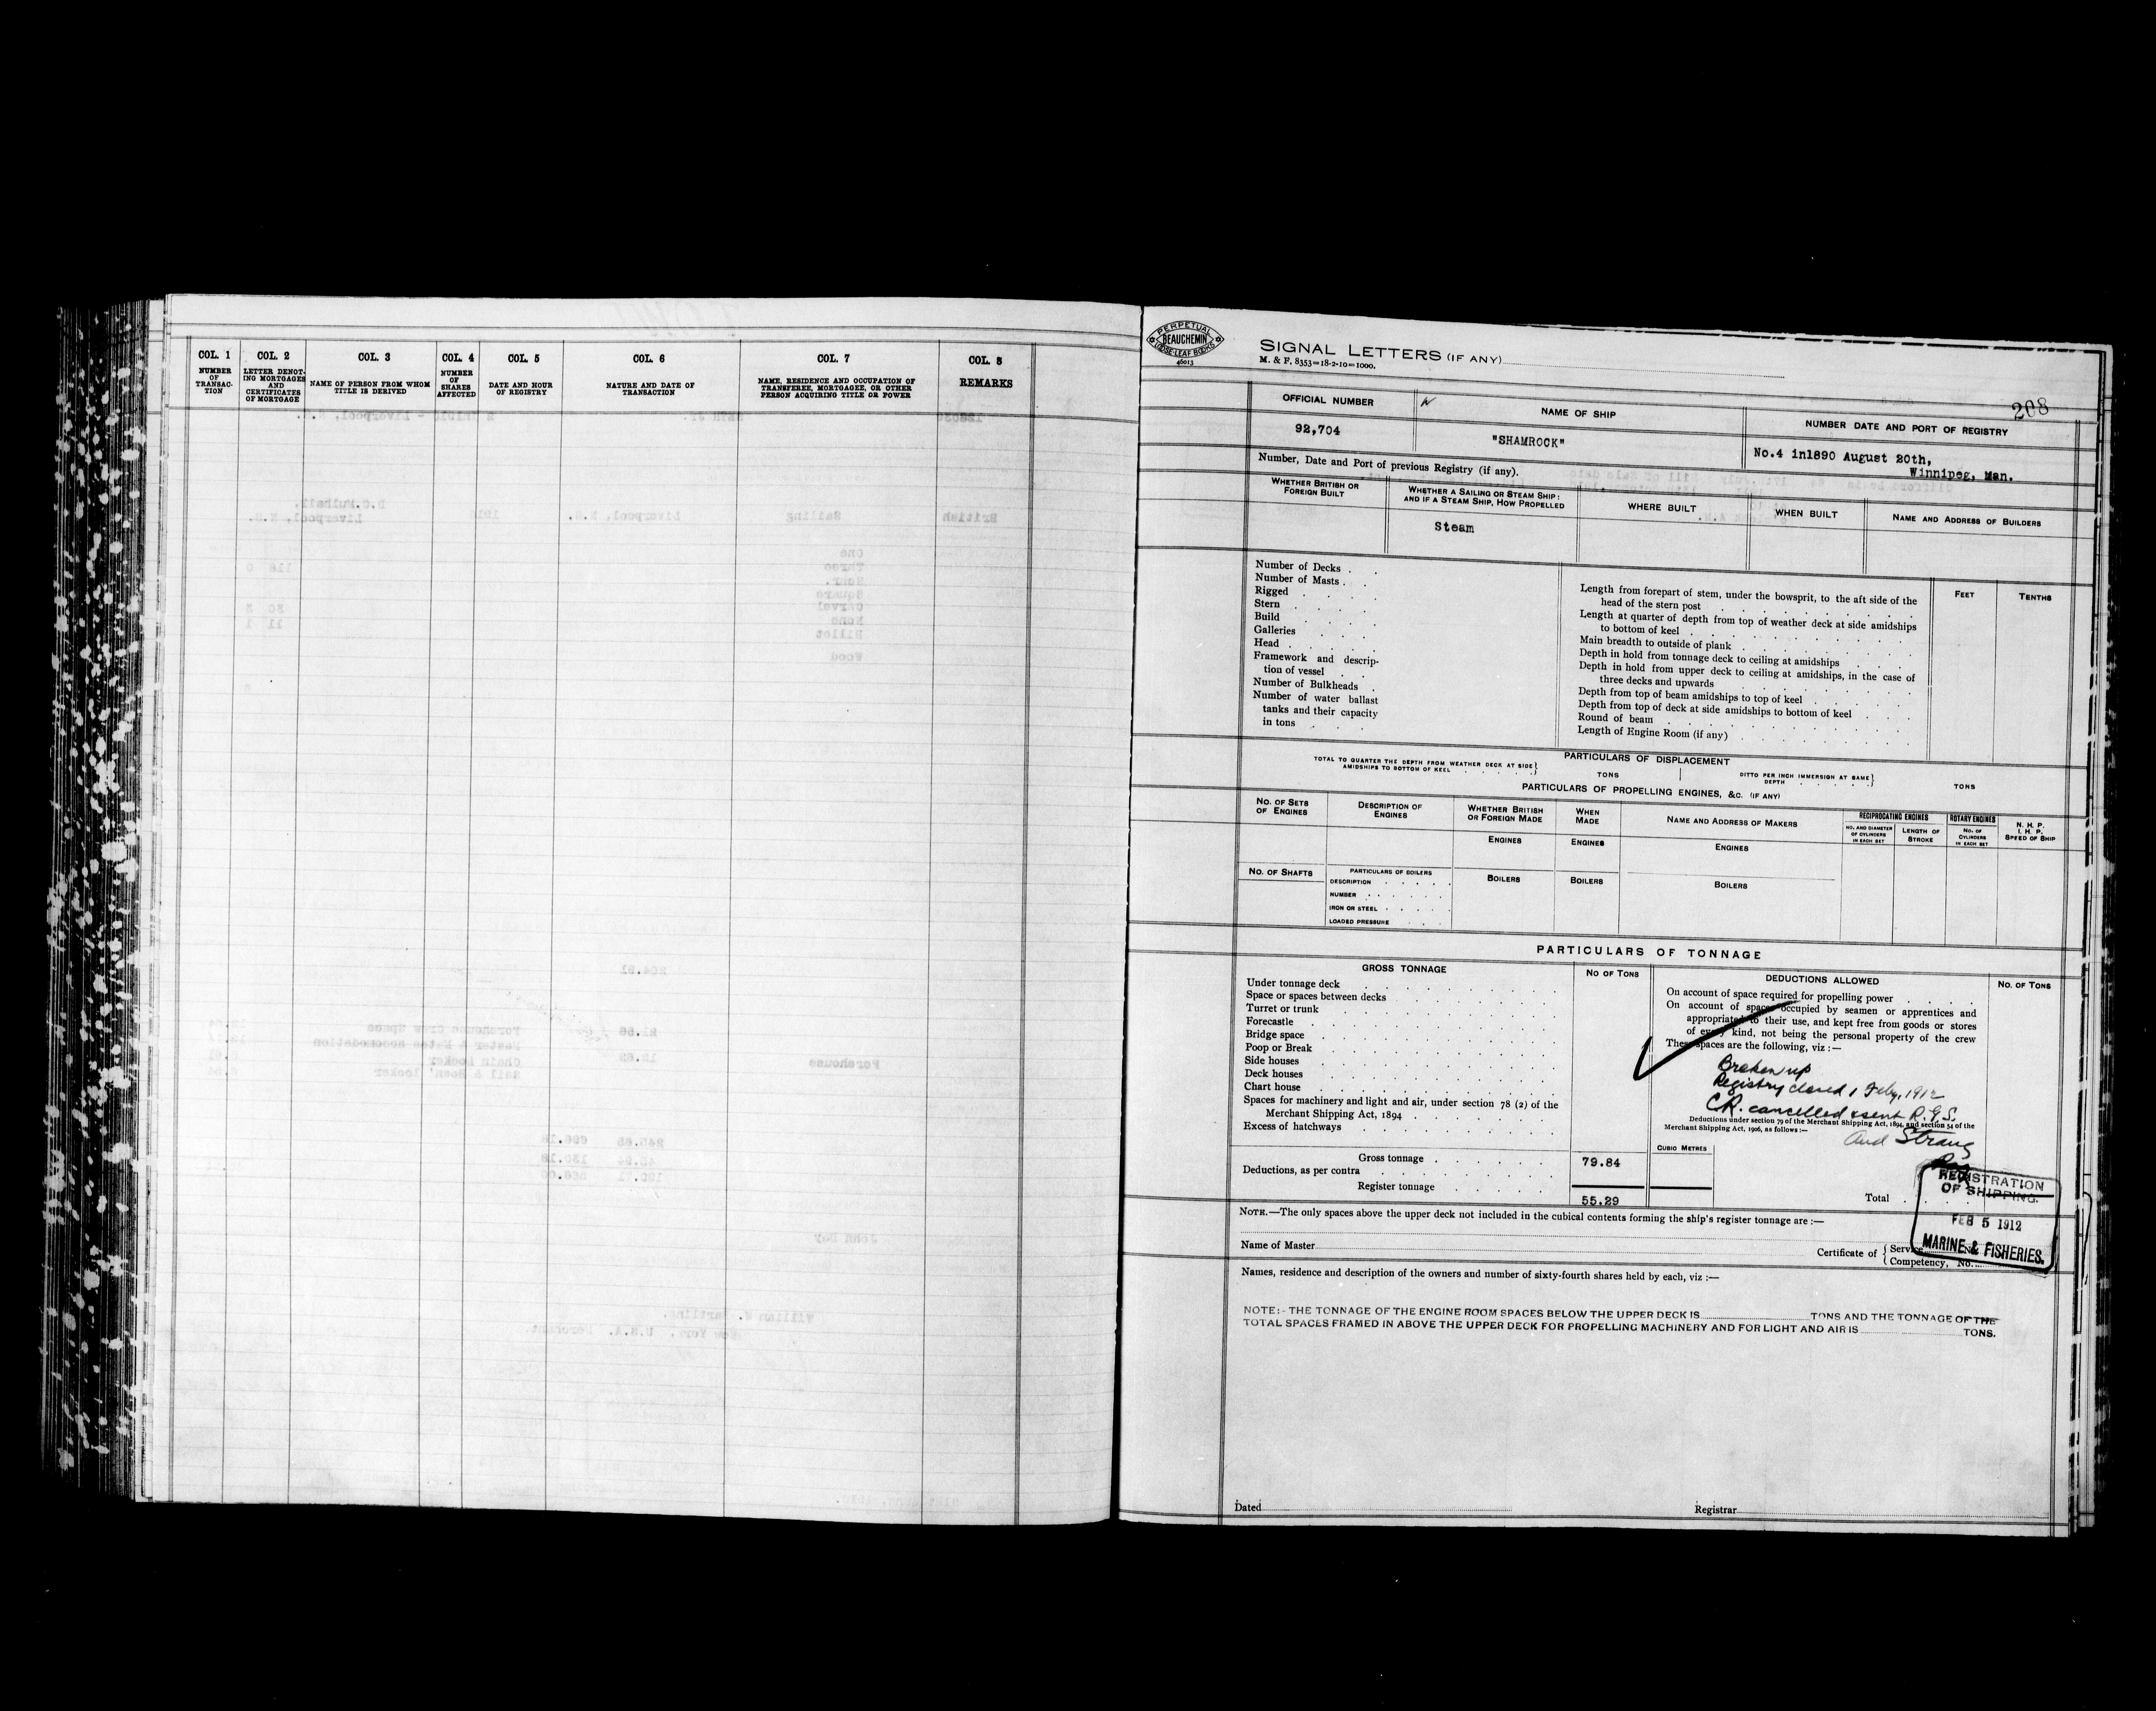 COL. 1
NUMBER
OF
TRANSAC-
TION
COL. 2
LETTER DENOT-
ING MORTGAGES
AND
CERTIFICATES
OF MORTGAGE
COL. 3
NAME OF PERSON FROM WHOM
TITLE IS DERIVED
COL. 4
NUMBER
OF
SHARES
AFFECTED
COL. 5
DATE AND HOUR
OF REGISTRY
COL. 6
NATURE AND DATE OF
TRANSACTION
COL. 7
NAME, RESIDENCE AND OCCUPATION OF
TRANSFEREE, MORTGAGEE, OR OTHER
PERSON ACQUIRING TITLE OR POWER
COL. 8
REMARKS
PERPETUAL
BEAUCHEMIN
LOOSE-LEAF BOOKS
46013
SIGNAL LETTERS (IF ANY)
M. & F. 8353=18-2-10=1000.
208
OFFICIAL NUMBER
92,704
NAME OF SHIP
"SHAMROCK"
NUMBER DATE AND PORT OF REGISTRY
No.4 in1890 August 20th,
Winnipeg, Man.
Number, Date and Port of previous Registry (if any).
WHETHER BRITISH OR
FOREIGN BUILT
WHETHER A SAILING OR STEAM SHIP:
AND IF A STEAM SHIP, HOW PROPELLED
Steam
WHERE BUILT
WHEN BUILT
NAME AND ADDRESS OF BUILDERS
Number of Decks
Number of Masts
Rigged
Stern
Build
Galleries
Head
Framework and descrip-
tion of vessel
Number of Bulkheads
Number of water ballast
tanks and their capacity
in tons
FEET
TENTHS
Length from forepart of stem, under the bowsprit, to the aft side of the
head of the stern post
Length at quarter of depth from top of weather deck at side amidships
to bottom of keel
Main breadth to outside of plank
Depth in hold from tonnage deck to ceiling at amidships
Depth in hold from upper deck to ceiling at amidships, in the case of
three decks and upwards
Depth from top of beam amidships to top of keel
Depth from top of deck at side amidships to bottom of keel
Round of beam
Length of Engine Room (if any)
PARTICULARS OF DISPLACEMENT
TOTAL TO QUARTER THE DEPTH FROM WEATHER DECK AT SIDE
AMIDSHIPS TO BOTTOM OF KEEL
TONS
DITTO PER INCH IMMERSION AT SAME
DEPTH
TONS
PARTICULARS OF PROPELLING ENGINES, &C. (IF ANY)
NO. OF SETS
OF ENGINES
DESCRIPTION OF
ENGINES
WHETHER BRITISH
OR FOREIGN MADE
WHEN
MADE
NAME AND ADDRESS OF MAKERS
RECIPROCATING ENGINES
NO. AND DIAMETER
OF CYLINDERS
IN EACH SET
LENGTH OF
STROKE
ROTARY ENGINES
NO. OF
CYLINDERS
IN EACH SET
N. H. P.
I. H. P.
SPEED OF SHIP
ENGINES
ENGINES
ENGINES
NO. OF SHAFTS
PARTICULARS OF BOILERS
DESCRIPTION
NUMBER
IRON OR STEEL
LOADED PRESSURE
BOILERS
BOILERS
BOILERS
PARTICULARS OF TONNAGE
GROSS TONNAGE
NO OF TONS
Under tonnage deck
Space or spaces between decks
Turret or trunk
Forecastle
Bridge space
Poop or Break
Side houses
Deck houses
Chart house
Spaces for machinery and light and air, under section 78 (2) of the
Merchant Shipping Act, 1894
Excess of hatchways
Gross tonnage
79.84
Deductions, as per contra
Register tonnage
55.29
DEDUCTIONS ALLOWED
NO. OF TONS
On account of space required for propelling power
On account of spaces occupied by seamen or apprentices and
appropriated to their use, and kept free from goods or stores
of every kind, not being the personal property of the crew
These spaces are the following, viz :—
Broken up
Registry closed 1 Feby, 1912
CR. cancelled & sent R.G.S.
Deductions under section 79 of the Merchant Shipping Act, 1894, and section 54 of the
Merchant Shipping Act, 1906, as follows :—
And Strang
CUBIC METRES
Total
REGISTRATION
OF SHIPPING.
FEB 5 1912
MARINE & FISHERIES.
NOTE.—The only spaces above the upper deck not included in the cubical contents forming the ship's register tonnage are :—
Name of Master
Certificate of
Service No.
Competency, No.
Names, residence and description of the owners and number of sixty-fourth shares held by each, viz :—
NOTE:- THE TONNAGE OF THE ENGINE ROOM SPACES BELOW THE UPPER DECK IS TONS AND THE TONNAGE OF THE
TOTAL SPACES FRAMED IN ABOVE THE UPPER DECK FOR PROPELLING MACHINERY AND FOR LIGHT AND AIR IS TONS.
Dated
Registrar